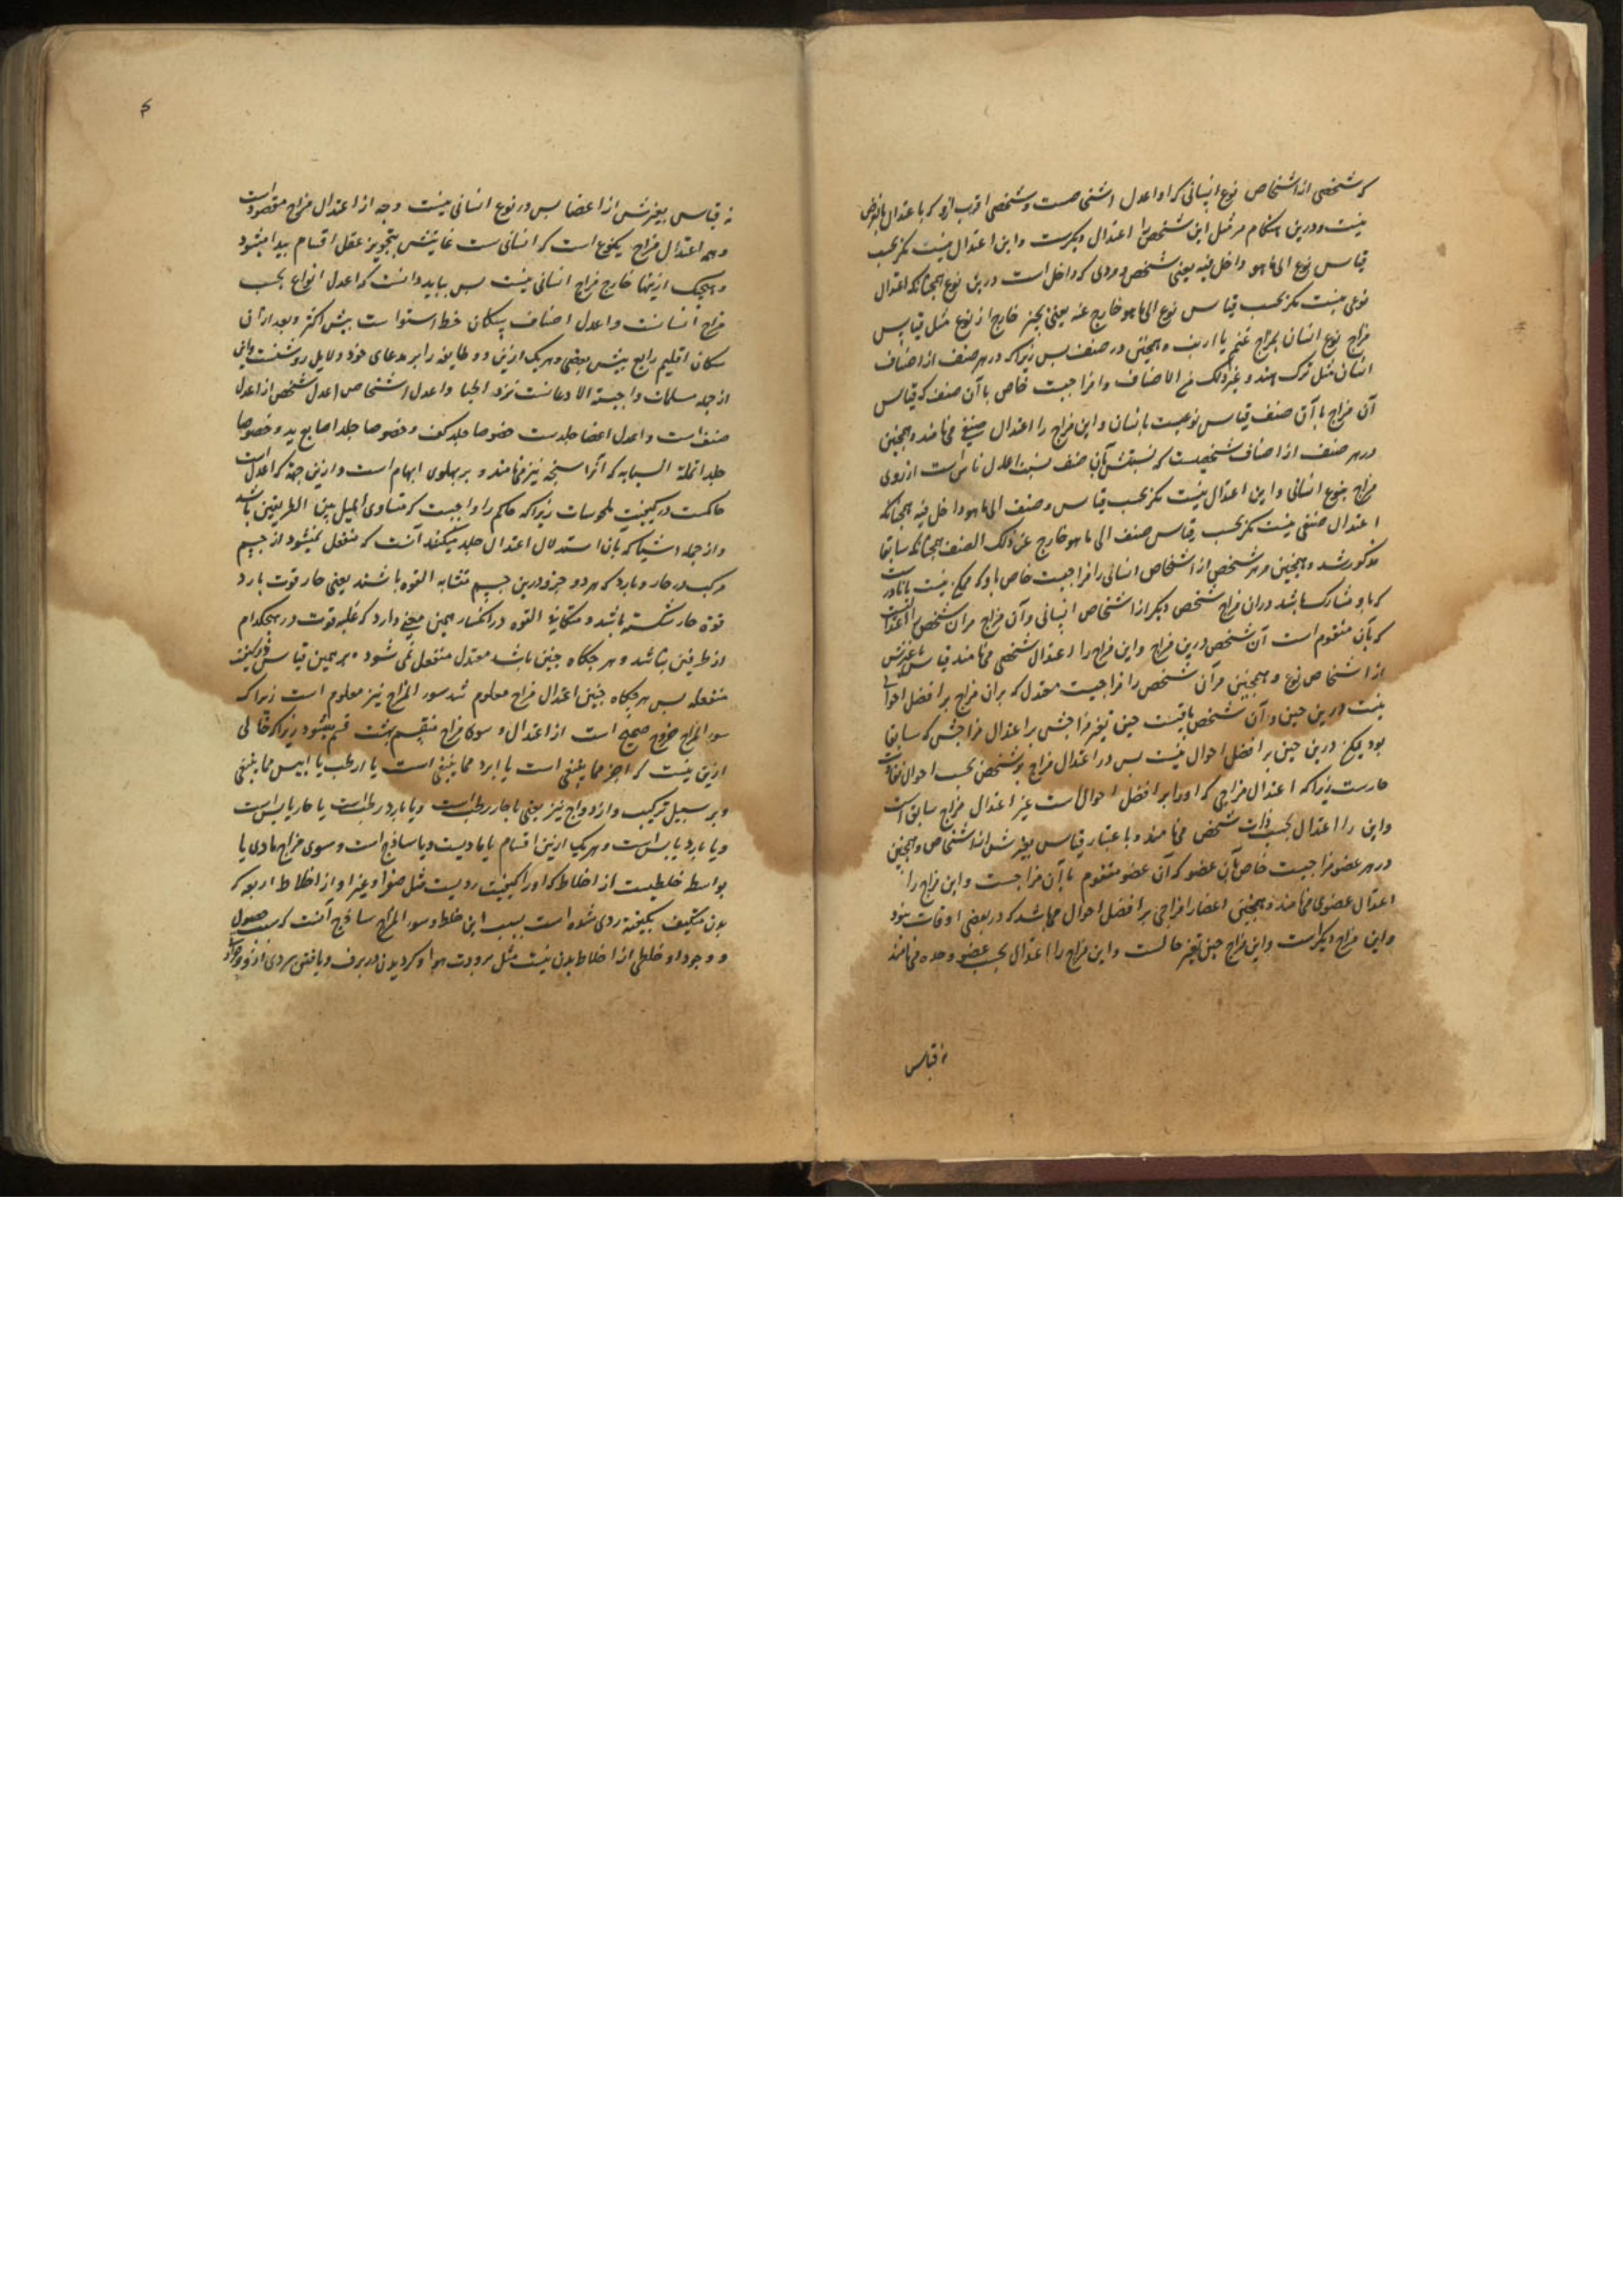 که شخصی از اشخاص نوع انسانی که او اعدل اشخاصست و شخصی اقرب ازو که با عتدال بالفرض
نیست و درین هنکام مر مثل این شخص را اعتدال دیکرست و این اعتدال نیست مکر بحسب
قیاس نوع الی ما هو داخل فیه یعنی شخص و فردی که داخل است درین نوع همچنانکه اعتدال
نوعی نیست مکر بحسب قیاس نوع الی ما هو خارج عنه یعنی بچیز خارج از نوع مثل قیاس
مزاج نوع انسان بمزاج غنم یا ارنب و همچنین در صنف پس زیراکه در هر صنف از اصناف
انسان مثل ترک هند و غیر ذلک من الاصناف را مزاجیست خاص با آن صنف که قیاس
آن مزاج با آن صنف قیاس نوعیست بانسان و این مزاج را اعتدال صنفی می نامند و همچنین
در هر صنف از اصناف شخصیست که نسبتش بآن صنف نسبت اعدل ناس است از روی
مزاج بنوع انسانی و این اعتدال نیست مکر بحسب قیاس صنف الی ما هو داخل فیه همچنانکه
اعتدال صنفی نیست مکر بحسب قیاس صنف الی ما هو خارج عن ذلک الصنف همچنانکه سابقا
مذکور شد و همچنین مر هر شخص از اشخاص انسانی را مزاجیست خاص باو که ممکن نیست یا نادرست
که باو مشارک باشد دران مزاج شخص دیکر از اشخاص انسانی و آن مزاج مر آن شخص را اعتدالیست
که بآن متقوم است آن شخص درین مزاج و این مزاج را اعتدال شخصی می نامند قیاس بغیرش
از اشخاص نوع و همچنین مر آن شخص را مزاجیست معتدل که بران مزاج بر افضل احوال
نیست درین حین و آن شخص باقیست حین تغیر مزاجش بر اعتدال مزاجش که سابقا
بود لیکن درین حین بر افضل احوال نیست پس در اعتدال مزاج هر شخص بحسب احوال تفاوت
دارست زیراکه اعتدال مزاجی که او را بر افضل احوال است غیر اعتدال مزاج سابق است
و این را اعتدال بحسب ذات شخص می نامند و با عتبار قیاس بغیرش از اشخاص و همچنین
در هر عضو مزاجیست خاص بآن عضو که آن عضو متقوم بآن مزاجست و این مزاج را
اعتدال عضوی می نامند و همچنین اعضا را مزاجی بر افضل احوال می باشد که در بعضی اوقات نبود
و این مزاج دیکر است و این مزاج حین تغیر حالست و این مزاج را اعتدال بحسب عضو وحده می نامند
نه قیاس
نه قیاس بغیرش از اعضا پس در نوع انسانی نیست وجه از اعتدال مزاج مقصود است
و همه اعتدال مزاج یکنوع است که انسانی ست غایتش بتجویز عقل اقسام پیدا میشود
و هیچیک ازینها خارج مزاج انسانی نیست پس بباید دانست که اعدل انواع بحسب
مزاج انسانست و اعدل اصناف سکان خط استواست پیش اکثر و بعد ازان
سکان اقلیم رابع پیش بعضی و هر یک ازین دو طایفه را بر مدعای خود دلایل روشنست و این
از جمله مسلمات واجبة الادعانست نزد اطبا و اعدل اشخاص اعدل شخص از اعدل
صنف است و اعدل اعضا جلدست خصوصا جلد کف و خصوصا جلد اصابع ید و خصوصا
جلد انملة السبابه که آنرا سبحه نیز می نامند و بر پهلوی ابهام است و ازین جهة که اعدل است
حاکمست در کیفیت ملموسات زیراکه حاکم را واجبست که متساوی المیل بین الطرفین باشد
و از جمله اشیا که بآن استدلال اعتدال جلد میکنند آنست که منفعل نمیشود از جسم
مرکب در حار و بارد که هر دو جزو درین جسم متشابه القوه باشند یعنی حار قوت بارد
قوة حار شکسته باشد و متکافی القوه در انکسار همین معنی دارد که غلبه قوت در هیچکدام
از طرفین نباشد و هر جکاه چنین باشد معتدل منفعل نمی شود و بر همین قیاس در کیفیت
منفعله پس هر جکاه چنین اعتدال مزاج معلوم شد سوء المزاج نیز معلوم است زیراکه
سوء المزاج خروج صحیح است از اعتدال و سوء مزاج منقسم بهشت قسم میشود زیراکه خالی
ازین نیست که احر مما ینبغی است یا ابرد مما ینبغی است یا ارطب یا ایبس مما ینبغی
و بر سبیل ترکیب و ازدواج نیز یعنی یا حار رطب است و یا بارد رطب است یا حار یابس است
و یا بارد یابس است و هر یک ازین اقسام یا مادیست و یا ساذج است و سوی مزاج مادی یا
بواسطه خلطیست از اخلاط که او را کیفیت ردیست مثل صفرا و غیر او از اخلاط اربعه که
بدن متکیف بکیفیة ردی شده است بسبب این خلط و سوء المزاج ساذج آنست که سبب حصول
و وجود او خلطی از اخلاط بدن نیست مثل برودت هوا و کردیدن در برف و یافتن سردی ازو